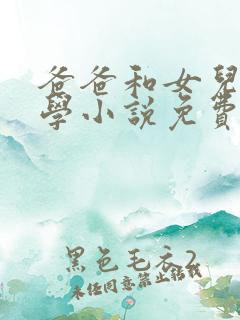 爸爸和女兒
學小說免費
黑色毛衣2
未经同意禁止转载